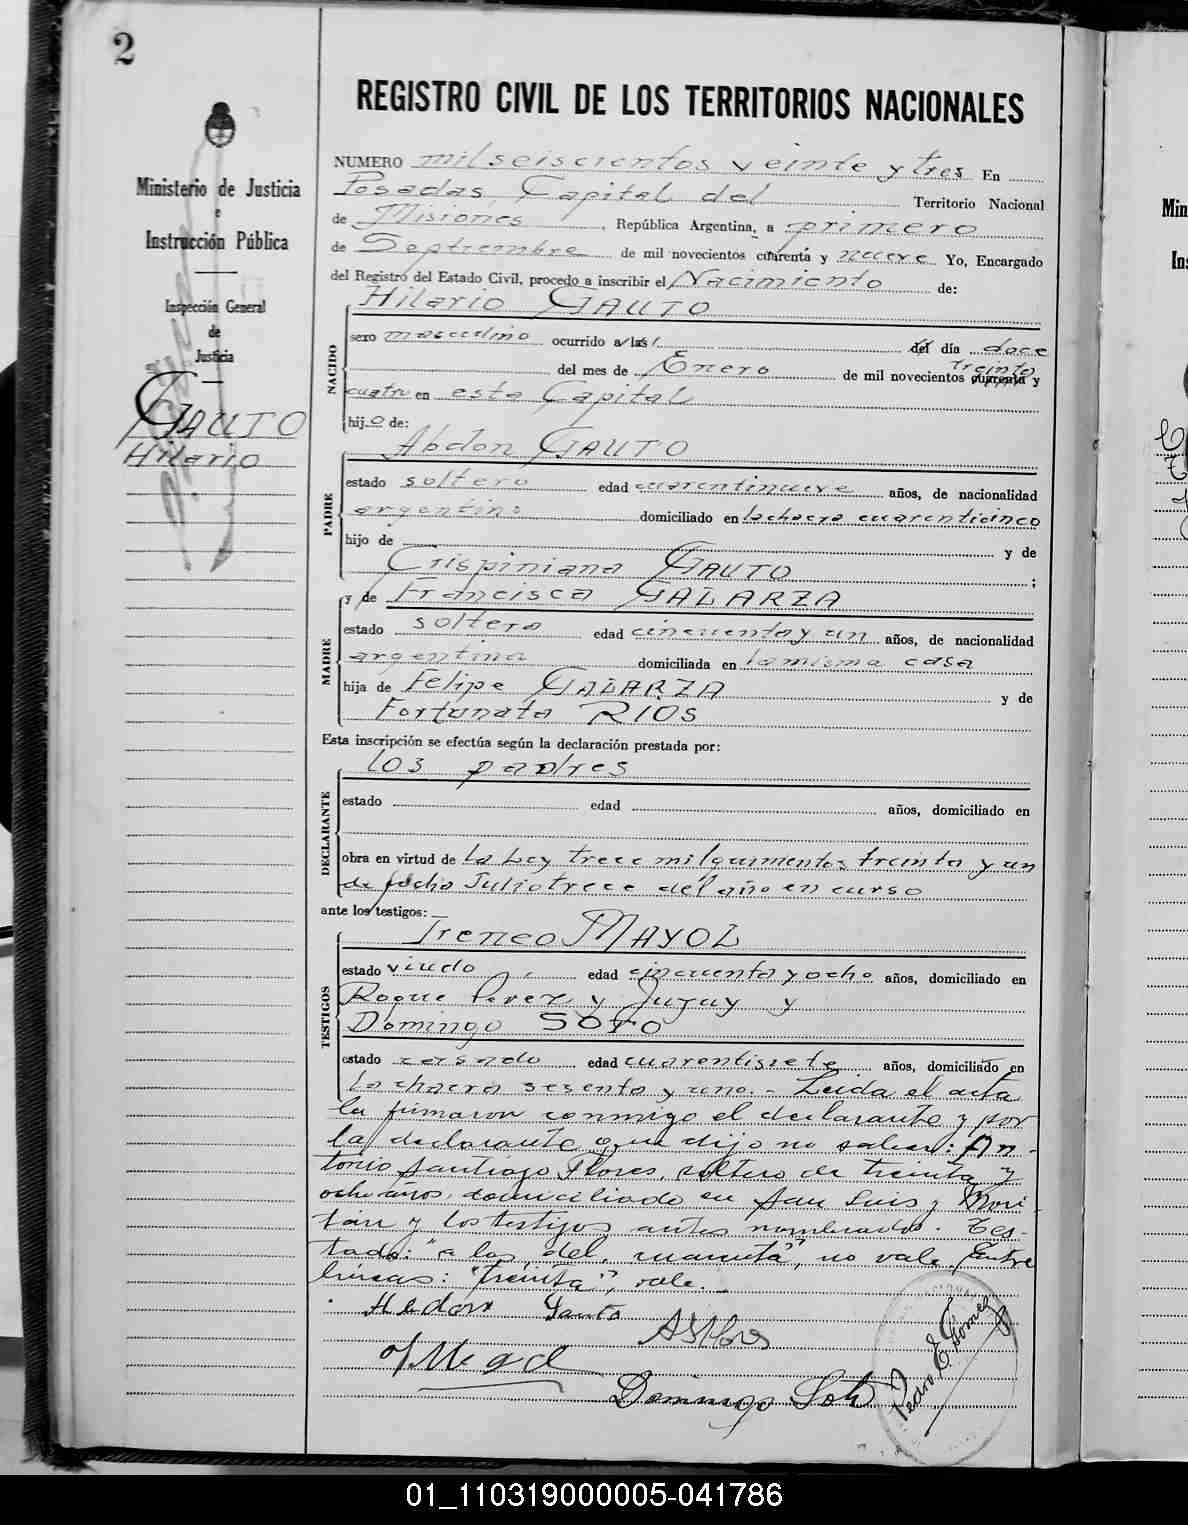 2
REGISTRO CIVIL DE LOS TERRITORIOS NACIONALES
Ministerio de Justicia
e
Instrucción Pública
Inspección General
de
Justicia
GAUTO
Hilario
NUMERO mil seiscientos veinte y tres En
Posadas, Capital del Territorio Nacional
de Misiones, República Argentina, a primero
de Septiembre de mil novecientos cuarenta y nueve Yo, Encargado
del Registro del Estado Civil, procedo a inscribir el Nacimiento de:
Hilario GAUTO
NACIDO
sexo masculino ocurrido a las del día doce
del mes de Enero de mil novecientos cuarenta y
treinta
cuatro en esta Capital
hijo de:
Abdon GAUTO
PADRE
estado soltero edad cuarentinueve años, de nacionalidad
argentino domiciliado en la chacra cuarenticinco
hijo de y de
Crispiniana GAUTO ;
y de Francisca GALARZA
MADRE
estado soltera edad cincuenta y un años, de nacionalidad
argentina domiciliada en la misma casa
hija de Felipe GALARZA y de
Fortunata RIOS
Esta inscripción se efectúa según la declaración prestada por:
los padres
DECLARANTE
estado edad años, domiciliado en
obra en virtud de la Ley trece mil quinientos treinta y un
de fecha Julio trece del año en curso
ante los testigos:
Ireneo MAYOL
TESTIGOS
estado viudo, edad cincuenta y ocho años, domiciliado en
Roque Perez y Jujuy y
Domingo SOTO
estado casado edad cuarentisiete años, domiciliado en
la chacra sesenta y uno.- Leida el acta
la firmaron conmigo el declarante y por
la declarante que dijo no saber: An-
tonio Santiago Flores, soltero de treinta y
ocho años, domiciliado en San Luis y
y los testigos antes nombrados. Tes-
tado: "a las del, cuarenta", no vale. Entre
lineas: "treinta", vale.-
Gauto
ASFlores
Domingo Soto
Pedro E. Gomez
01_110319000005-041786